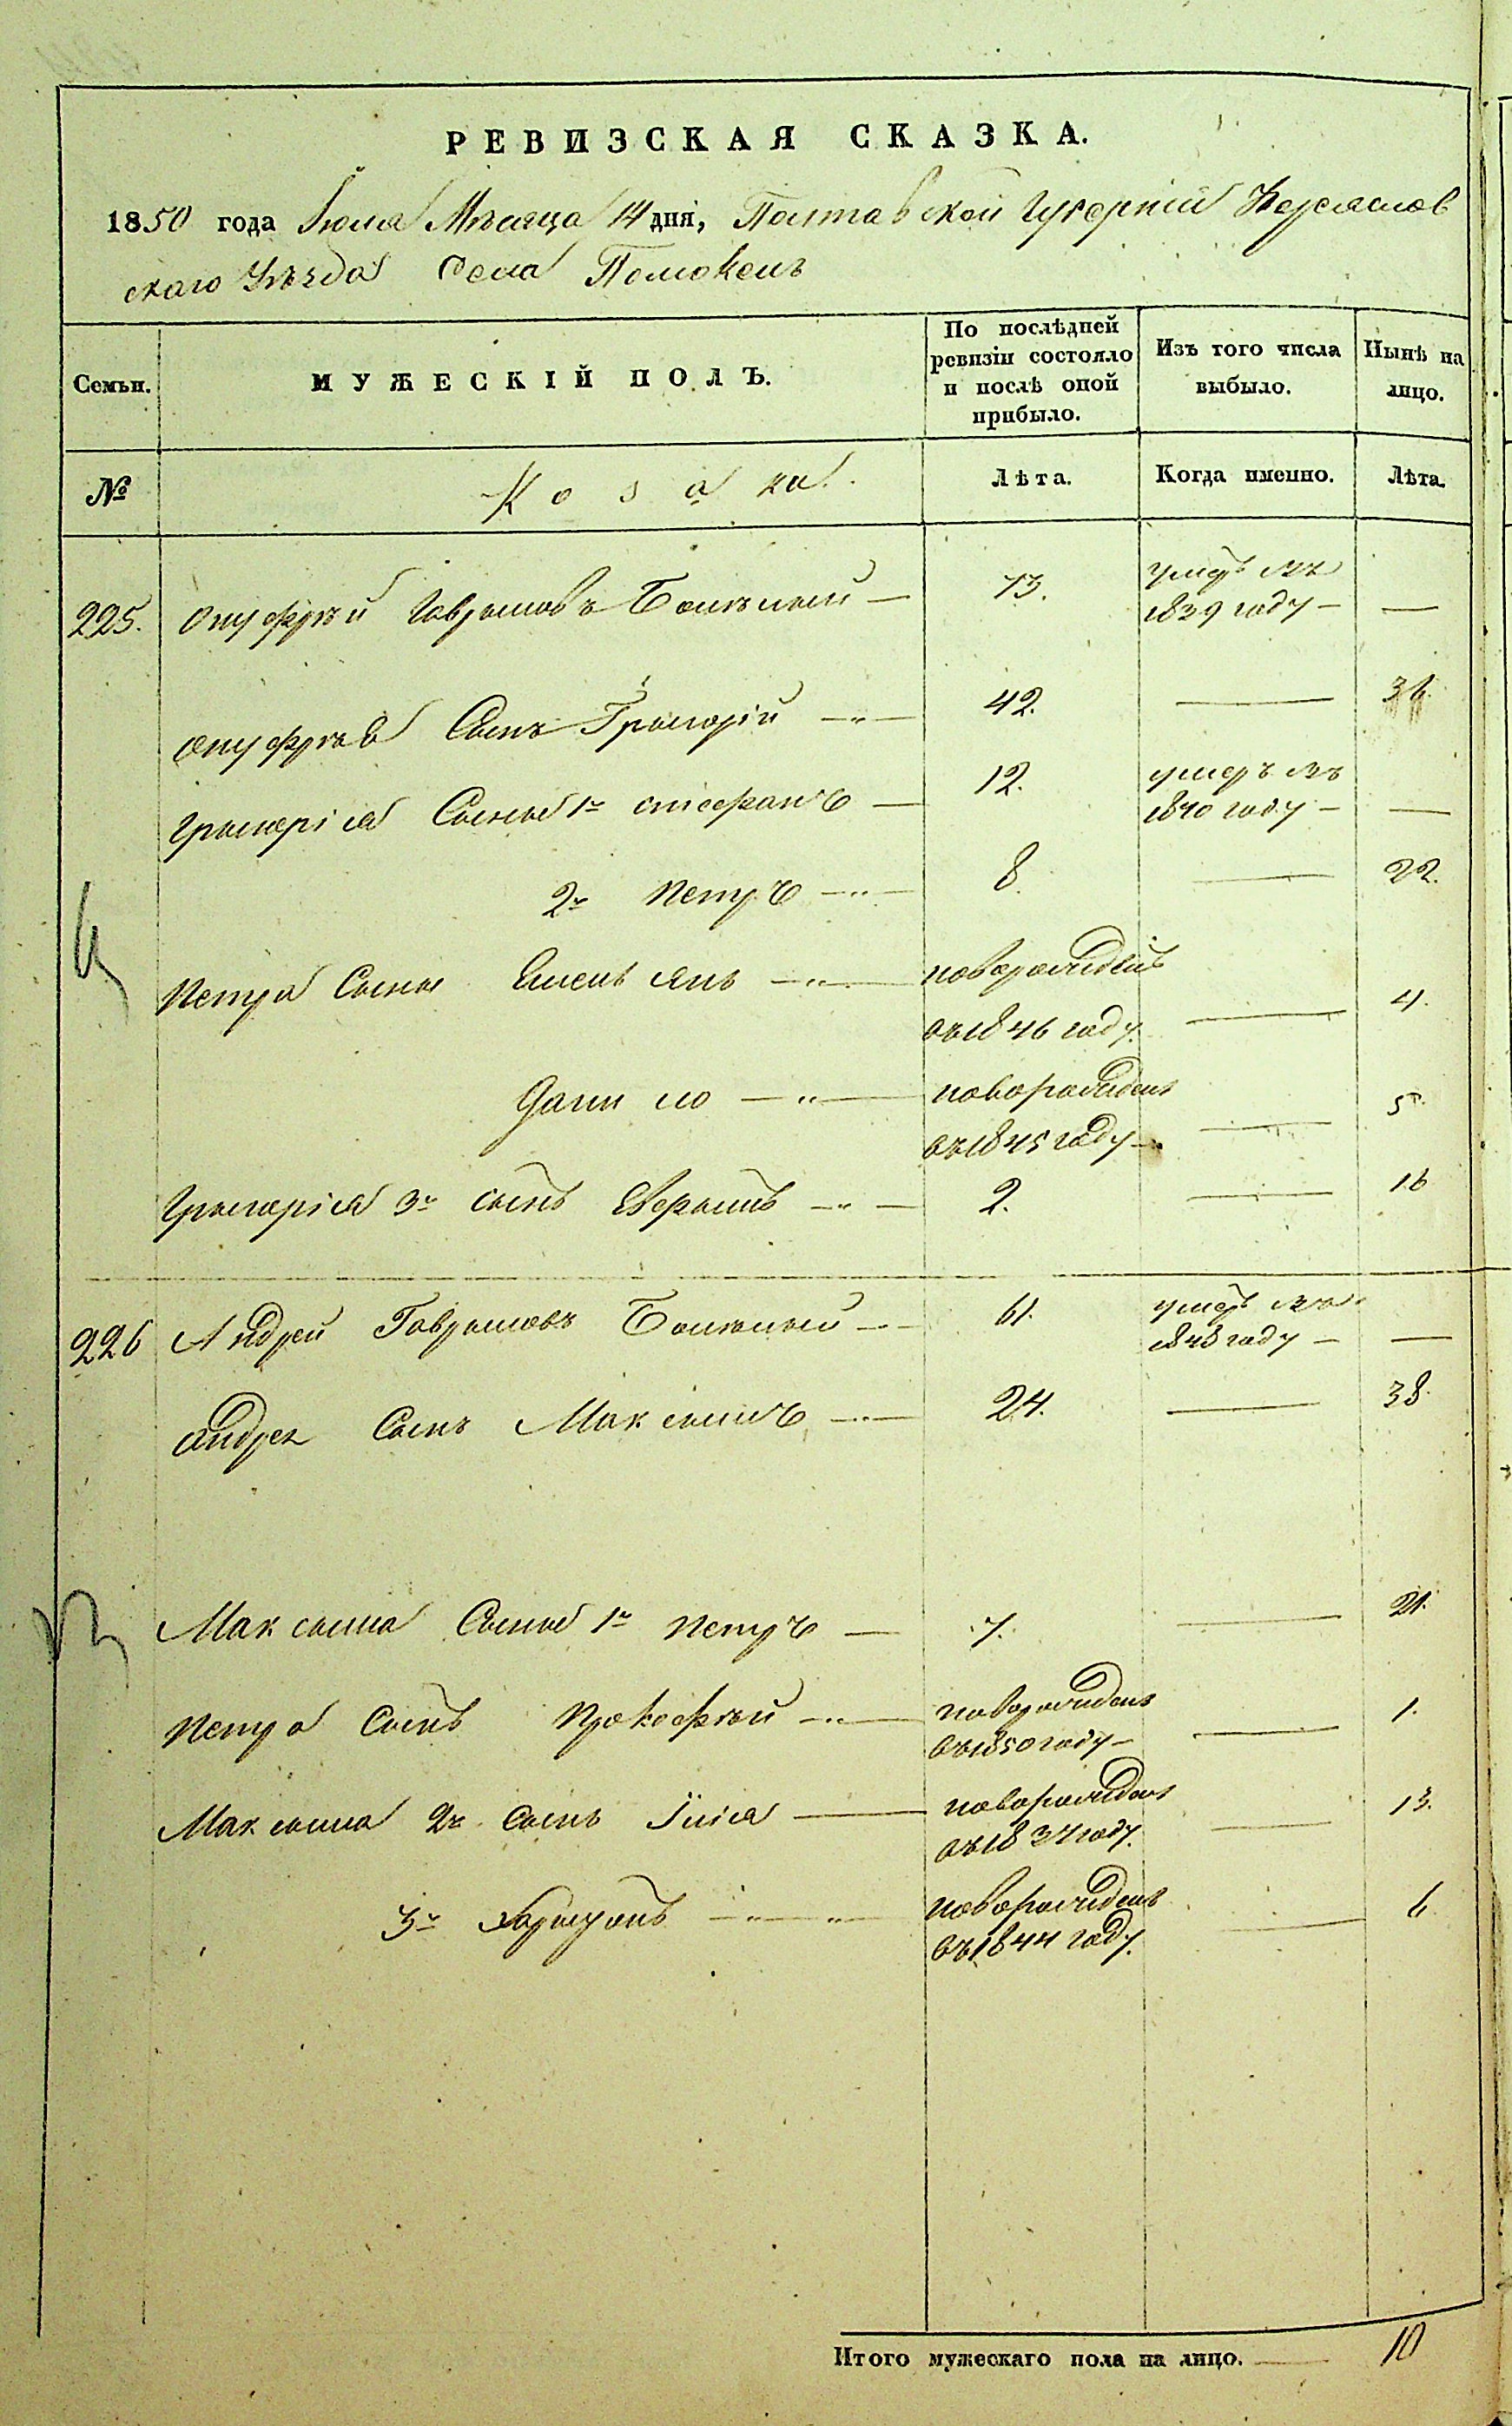 РЕВИЗСКАЯ СКАЗКА.
1850 года Іюля Мѣсяца 14 дня, Полтавской Губерніи Переяслов
скаго Уѣзда Села Помоклъ
Семьи.
МУЖЕСКІЙ ПОЛЪ.
По послѣдней ревизіи состояло и послѣ оной прибыло.
Изъ того числа выбыло.
Нынѣ на лицо.
№
Козаки.
Лѣта.
Когда именно.
Лѣта.
225. Онуфрѣй Гавриловъ — 73. умеръ въ 1839 году — —
Онуфрѣя Сынъ Григорій —„— 42. —
Григорія Сыновя 1й Стефанъ — 12. умеръ въ 1840 году — —
2й Петръ —„— 8. — 22.
Петра Сыны Емельянъ —„— новорожденъ въ 1846 году. — 4.
Данило —„— новорожденъ въ 1845 году — — 5.
Григорія 3й сынъ —„— 2. — 16
226 Андрей Гавриловъ —„— 61. умеръ въ 1848 году — —
Андрея Сынъ Максимъ —„— 24. — 38.
Максима Сыновя 1й Петръ — 7. — 21.
Петра Сынъ Прокофѣй —„— новорожденъ въ 1850 году — — 1.
Максима 2й Сынъ Илія — новорожденъ въ 1837 году. — 13.
3й Харитонъ —„— новорожденъ въ 1844 году. — 6
Итого мужескаго пола на лицо. — 10